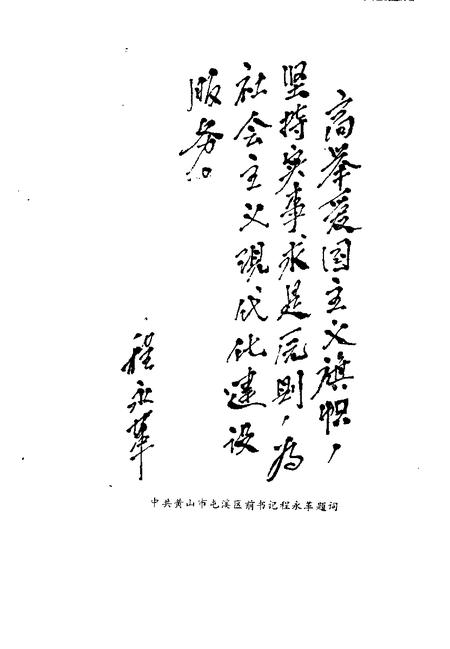 高举爱国主义旗帜，
坚持实事求是原则，为
社会主义现代化建设
服务。
程永革
中共黄山市屯溪区前书记程永革题词